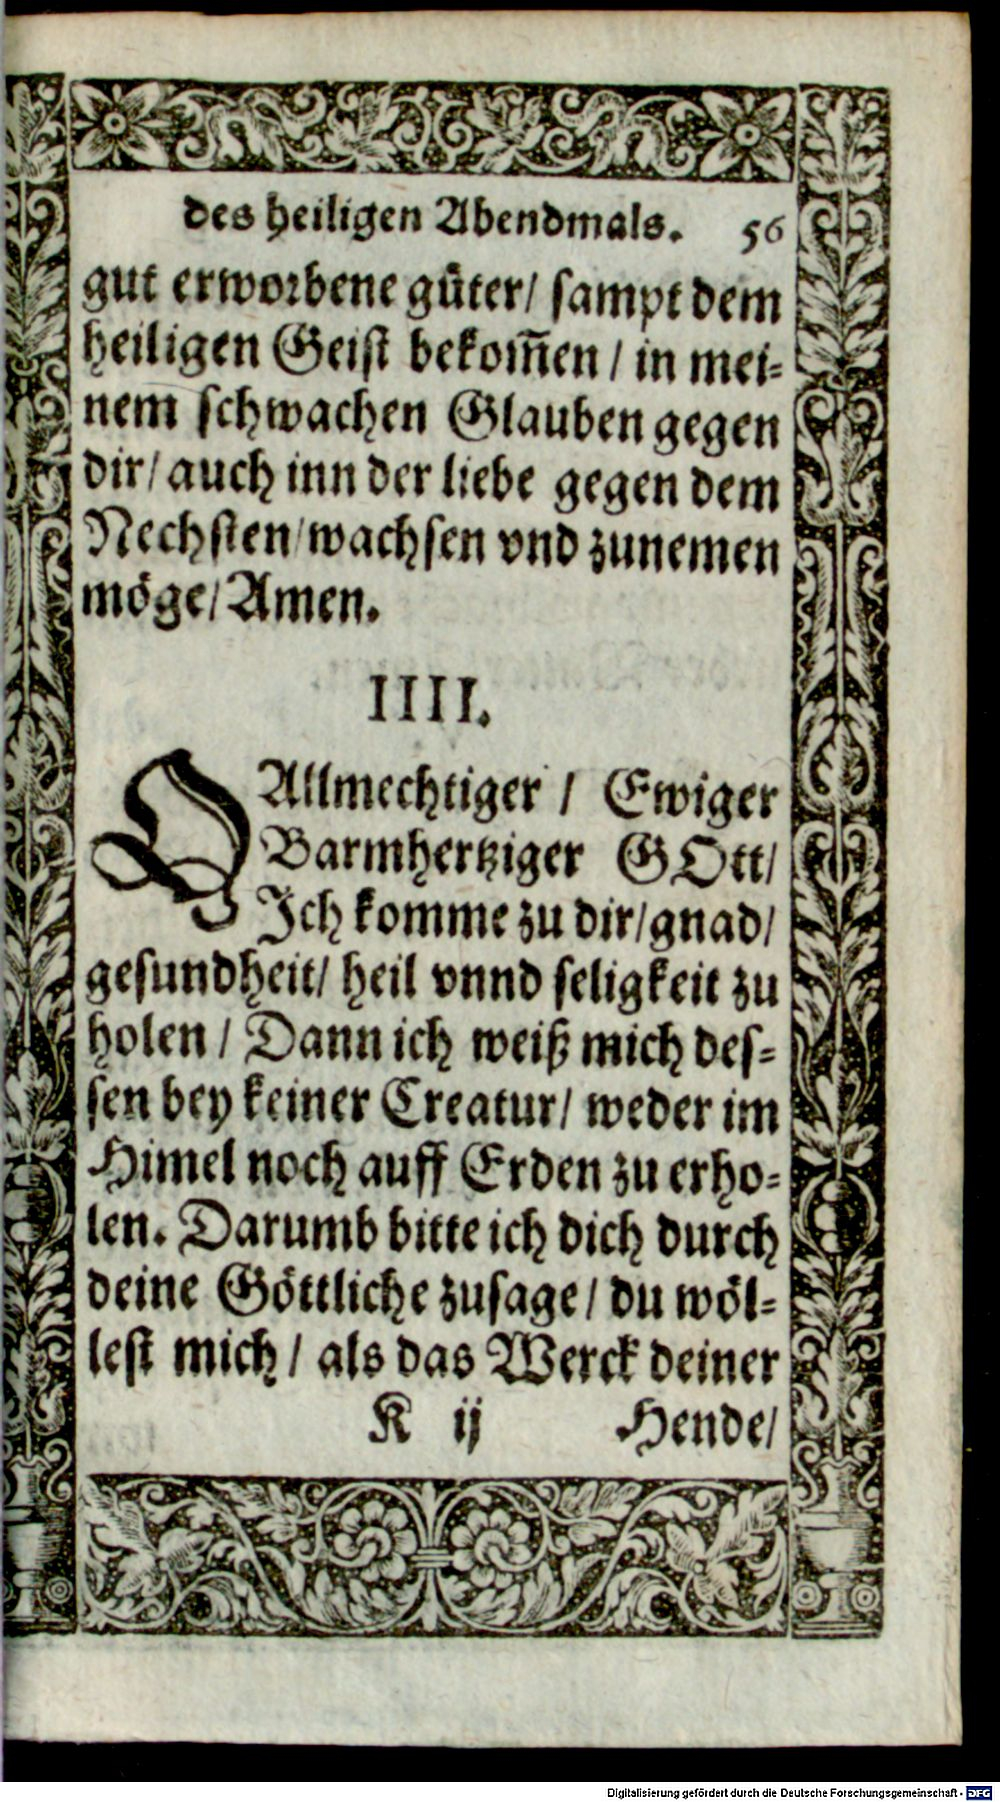 des heiligen Abendmals. 56
gut erworbene guͤter/ sampt dem
heiligen Geist bekom̃en / in mei=
nem schwachen Glauben gegen
dir/ auch inn der liebe gegen dem
Nechsten/ wachsen vnd zunemen
moͤge/ Amen.
IIII.
O Allmechtiger / Ewiger
Barmhertziger GOtt/
Ich komme zu dir/ gnad/
gesundheit/ heil vnnd seligkeit zu
holen / Dann ich weiß mich des=
sen bey keiner Creatur/ weder im
Himel noch auff Erden zu erho=
len. Darumb bitte ich dich durch
deine Goͤttliche zusage / du woͤl=
lest mich / als das Werck deiner
K ij Hende/
Digitalisierung gefördert durch die Deutsche Forschungsgemeinschaft - DFG